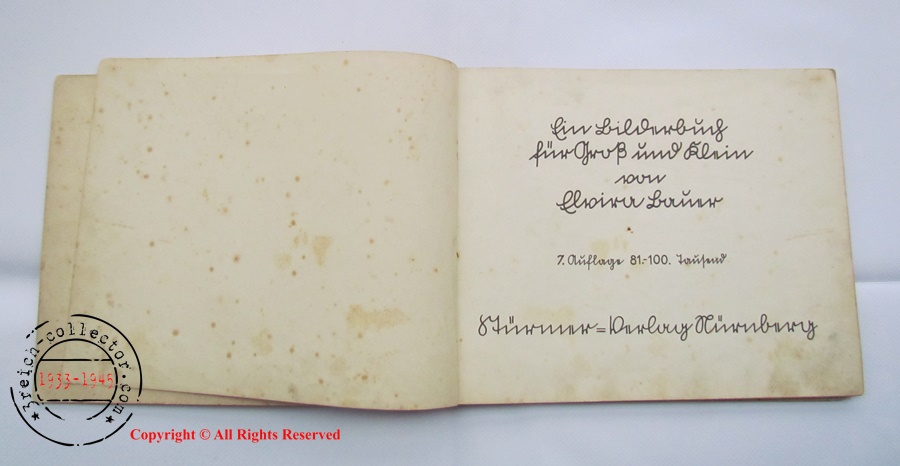 Ein Bilderbuch
für Groß und Klein
von
Elvira Bauer
7. Auflage 81.-100. Tausend
Stürmer=Verlag Nürnberg
★ 3reich-collector.com ★
1933-1945
Copyright © All Rights Reserved